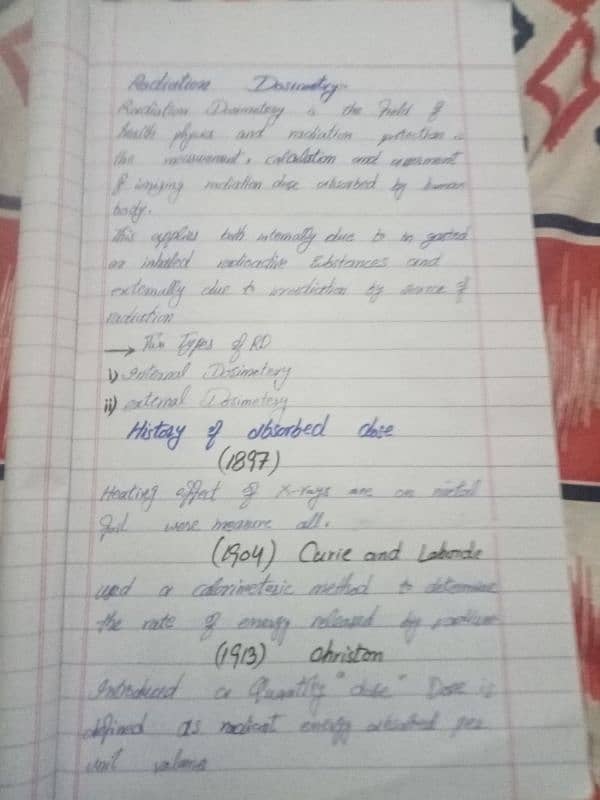 Radiation Dosimetry
Radiation Dosimetery is the field of
health physics and radiation protection is
the measurement, calculation and assessment
of ionizing radiation dose absorbed by human
body.
This applies both internally due to in gested
or inhaled radioactive Substances and
externally due to irradiation by source of
radiation
→ Two Types of RD
i) Internal Dosimetery
ii) external Dosimetery
History of absorbed dose
(1897)
Heating effect of X-rays are on metal
foil were measure all.
(1904) Curie and Laborde
used a calorimeteric method to determine
the rate of energy released by radium
(1913) Christon
Introduced a Quantity "dose" Dose is
defined as radient energy absorbed per
unit volume